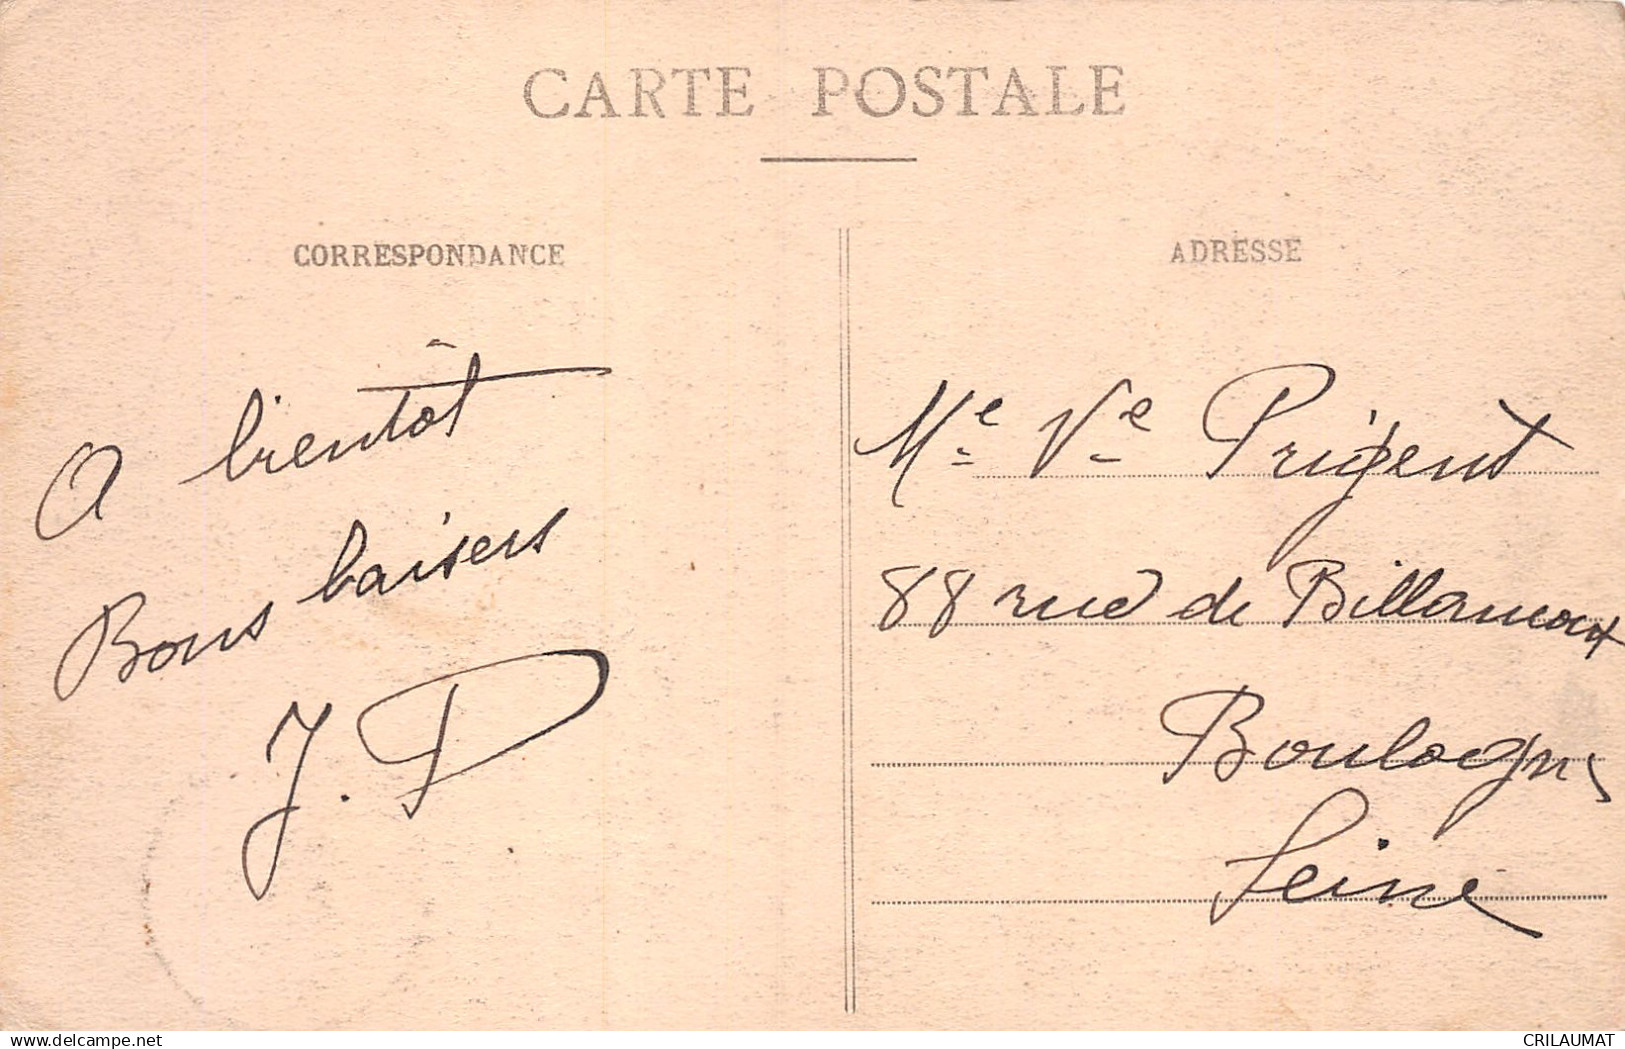 CARTE POSTALE
CORRESPONDANCE
A bientôt
Bons baisers
J. P
ADRESSE
Me Ve Prigent
88 rue de Billancourt
Boulogne
Seine
www.delcampe.net
CRILAUMAT